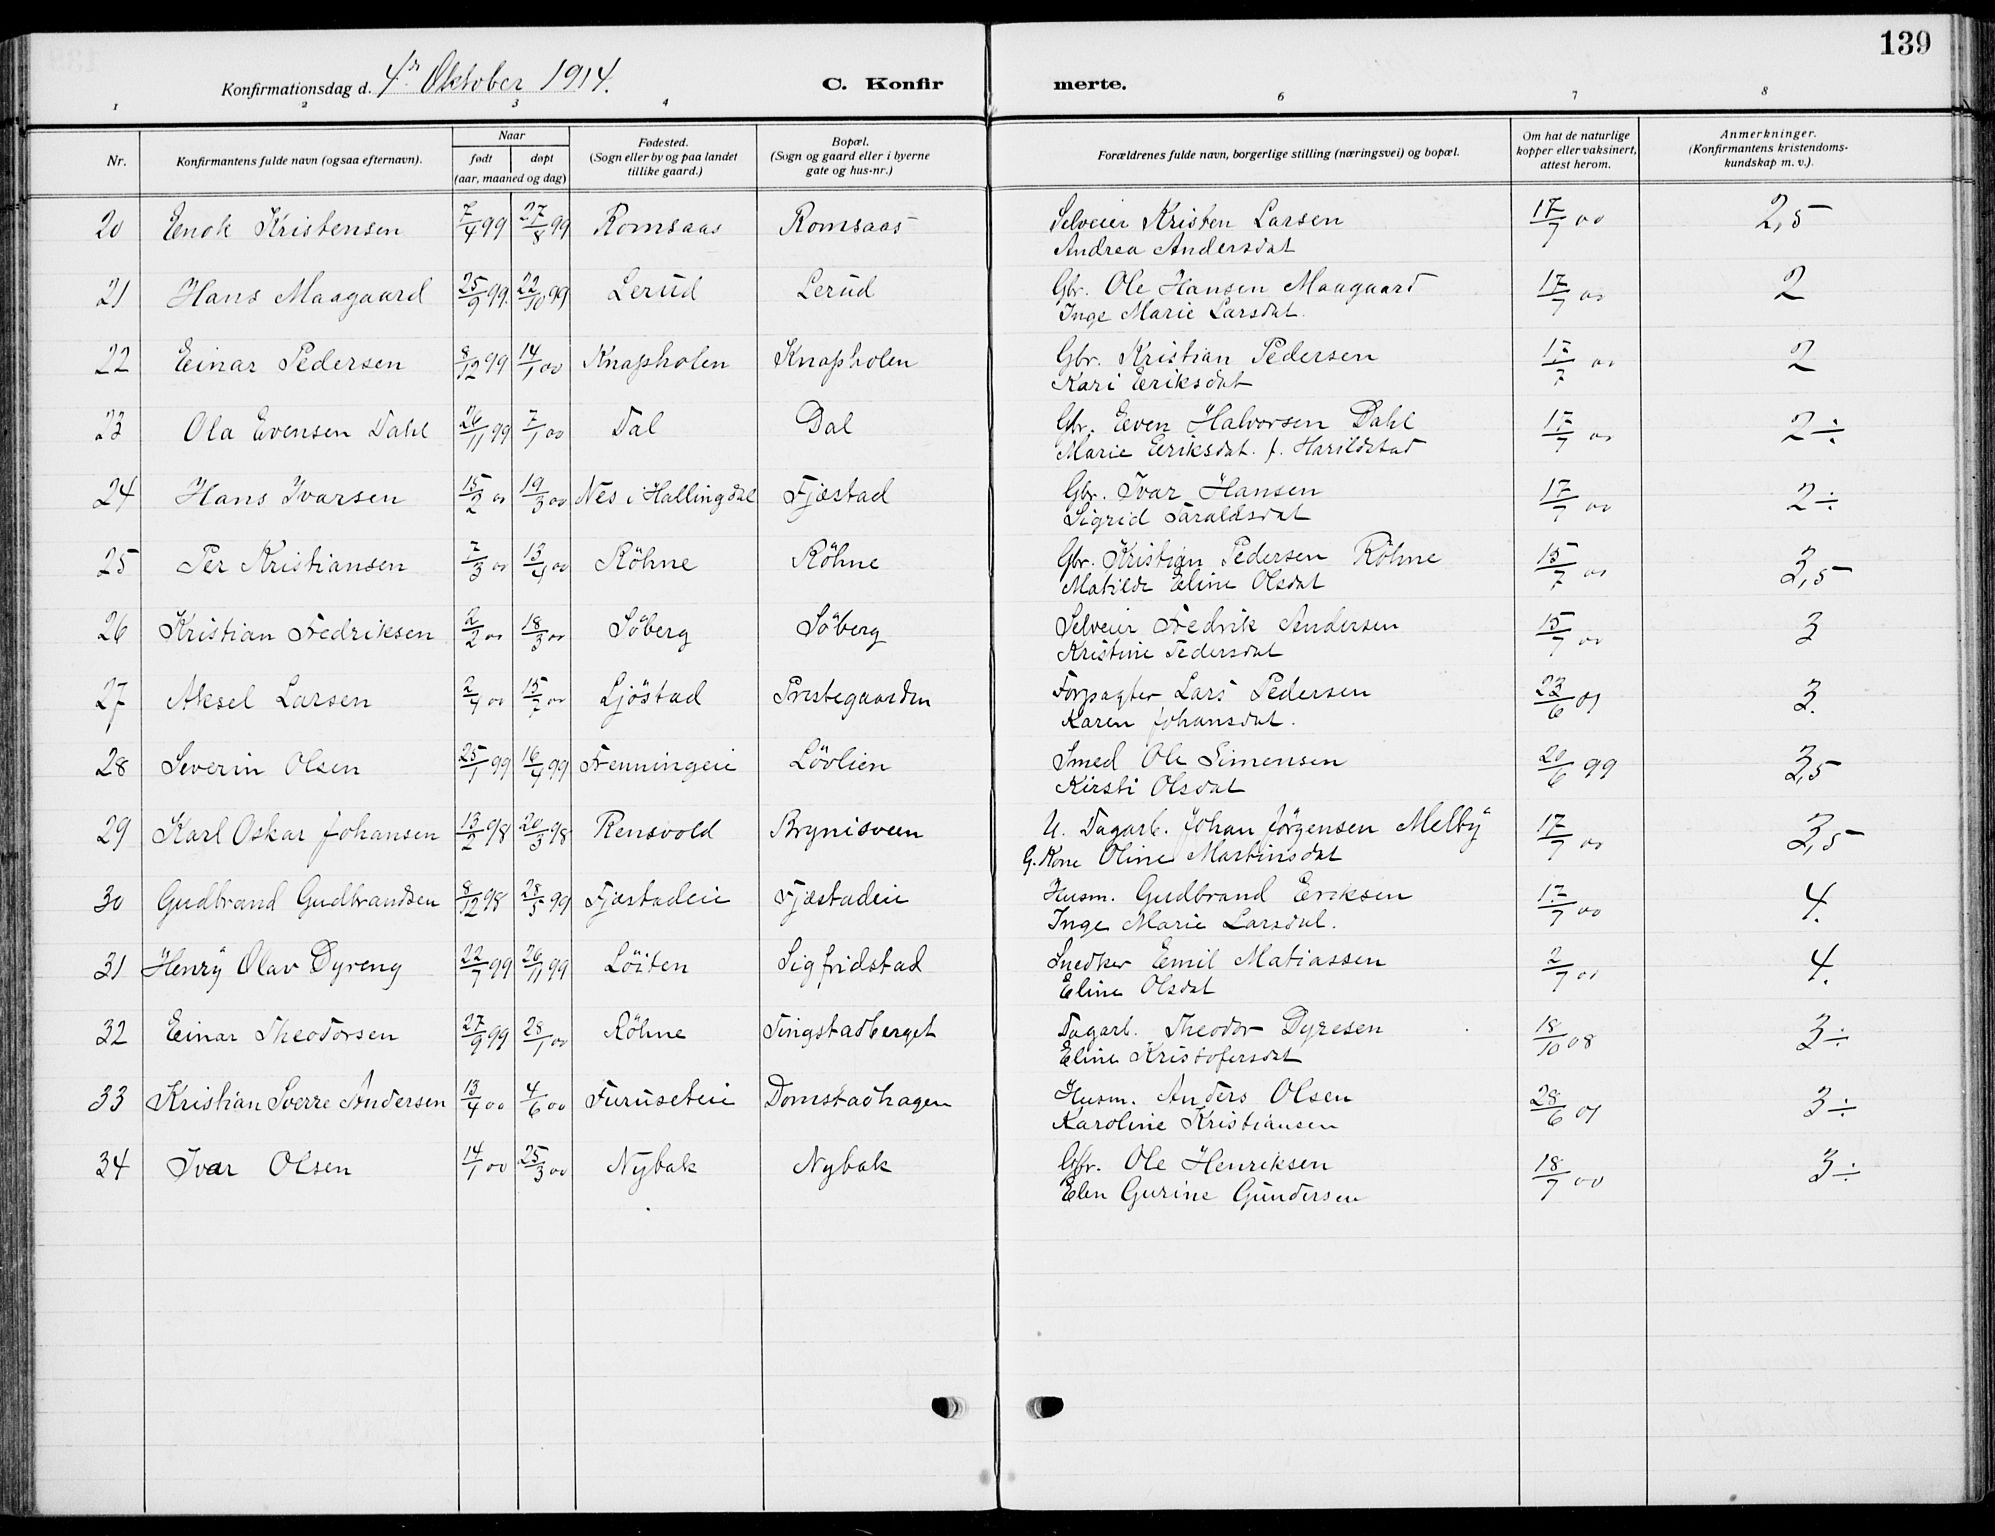 139
Konfirmationsdag d. 4de Oktober 1914.
C. Konfir merte.
1 2 3 4 6 7 8
Nr. Konfirmantens fulde navn (ogsaa efternavn). Naar født døpt (aar, maaned og dag) Fødested. (Sogn eller by og paa landet tillike gaard.) Bopæl. (Sogn og gaard eller i byerne gate og hus-nr.) Forældrenes fulde navn, borgerlige stilling (næringsvei) og bopæl. Om hat de naturlige kopper eller vaksinert, attest herom. Anmerkninger. (Konfirmantens kristendoms-kundskap m. v.).
20 Enok Kristensen 7/4 99 27/8 99 Romsaas Romsaas Selveier Kristen Larsen 17/7 00 2,5
Andrea Andersdat
21 Hans Maagaard 25/9 99. 22/10 99 Lerud Lerud Gbr. Ole Hansen Maagaard 17/7 00 2
Inge Marie Larsdat.
22 Einar Pedersen 8/12 99 14/1 00 Knapholen Knapholen Gbr. Kristian Pedersen 17/7 00 2
Kari Eriksdat
23 Ola Evensen Dahl 26/11 99 7/1 00 Dal Dal Gbr. Even Halvorsen Dahl 17/7 00 2÷
Marie Eriksdat. f. Harildstad
24 Hans Ivarsen 15/2 00 19/3 00 Nes i Hallingdal Fjæstad Gbr. Ivar Hansen 17/7 00 2÷
Sigrid Taraldsdat
25 Per Kristiansen 7/3 00 13/4 00 Röhne Röhne Gbr. Kristian Pedersen Röhne 15/7 00 3,5
Matilde Eline Olsdat
26 Kristian Fredriksen 2/2 00 18/3 00 Söberg Söberg Selveier Fredrik Andersen 15/7 00 3
Kristine Pedersdat
27 Aksel Larsen 2/4 00 15/7 00 Ljöstad Prestegaarden Forpagter Lars Pedersen 23/6 01 3.
Karen Johansdat.
28 Severin Olsen 25/1 99 16/4 99 Frenningeie Lövlien Smed Ole Simensen 20/6 99 3,5
Kirsti Olsdat
29 Karl Oskar Johansen 13/2 98 20/3 98 Rensvold Brynisveen U. Dagarb. Johan Jörgensen Melby 17/7 00 3,5
G. Kone Oline Martinsdat
30 Gudbrand Gudbrandsen 8/12 98 28/5 99 Fjæstadeie Fjæstadeie Husm. Gudbrand Eriksen 17/7 00 4.
Inge Marie Larsdat.
31 Henry Olav Dyreng 22/7 99 26/11 99 Löiten Sigfridstad Snedker Emil Matiassen 2/7 01 4.
Eline Olsdat
32 Einar Theodorsen 27/9 99 28/1 00 Röhne Tingstadberget Dagarb. Theodor Dyresen 18/10 08 3÷
Eline Kristofersdat
33 Kristian Sverre Andersen 13/4 00 4/6 00 Furuseteie Domstadhagen Husm. Anders Olsen 28/6 01 3÷
Karoline Kristiansen
34 Ivar Olsen 14/1 00 25/3 00 Nybak Nybak Gbr. Ole Henriksen 18/7 00 3÷
Elen Gurine Gundersen